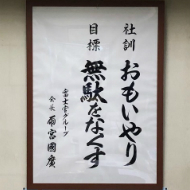 社訓 おもいやり
目標 無駄をなくす
富士宮グループ
会長 雨宮國廣